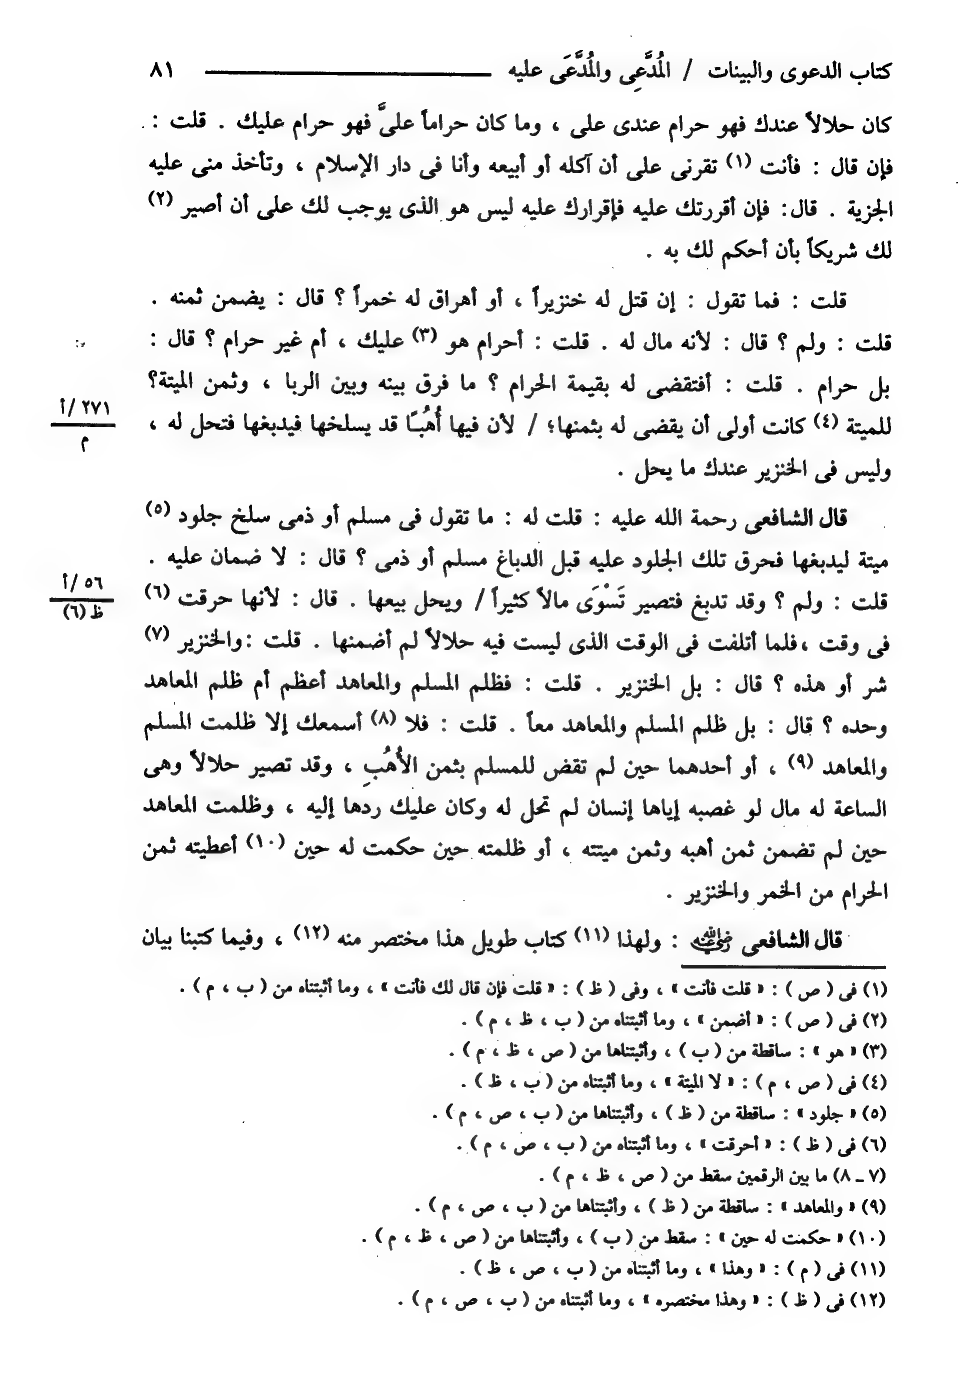 كتاب الدعوى والبينات / المُدَّعِى والمُدَّعَى عليه ٨١
كان حلالاً عندك فهو حرام عندى على ، وما كان حراماً علىَّ فهو حرام عليك . قلت :
فإن قال : فأنت (١) تقرنى على أن آكله أو أبيعه وأنا فى دار الإسلام ، وتأخذ منى عليه
الجزية . قال: فإن أقررتك عليه فإقرارك عليه ليس هو الذى يوجب لك على أن أصير (٢)
لك شريكاً بأن أحكم لك به .
قلت : فما تقول : إن قتل له خنزيراً ، أو أهراق له خمراً ؟ قال : يضمن ثمنه .
قلت : ولم ؟ قال : لأنه مال له . قلت : أحرام هو (٣) عليك ، أم غير حرام ؟ قال :
بل حرام . قلت : أفتقضى له بقيمة الحرام ؟ ما فرق بينه وبين الربا ، وثمن الميتة؟
٢٧١/أ
للميتة (٤) كانت أولى أن يقضى له بثمنها؛ / لأن فيها أُهُبًا قد يسلخها فيدبغها فتحل له ،
م
وليس فى الخنزير عندك ما يحل .
قال الشافعى رحمة الله عليه : قلت له : ما تقول فى مسلم أو ذمى سلخ جلود (٥)
ميتة ليدبغها فحرق تلك الجلود عليه قبل الدباغ مسلم أو ذمى ؟ قال : لا ضمان عليه .
٥٦/أ
قلت : ولم ؟ وقد تدبغ فتصير تَسْوَى مالاً كثيراً / ويحل بيعها . قال : لأنها حرقت (٦)
ظ (٦)
فى وقت ،فلما أتلفت فى الوقت الذى ليست فيه حلالاً لم أضمنها . قلت :والخنزير (٧)
شر أو هذه ؟ قال : بل الخنزير . قلت : فظلم المسلم والمعاهد أعظم أم ظلم المعاهد
وحده ؟ قال : بل ظلم المسلم والمعاهد معاً . قلت : فلا (٨) أسمعك إلا ظلمت المسلم
والمعاهد (٩) ، أو أحدهما حين لم تقض للمسلم بثمن الأُهُبِ ، وقد تصير حلالاً وهى
الساعة له مال لو غصبه إياها إنسان لم تحل له وكان عليك ردها إليه ، وظلمت المعاهد
حين لم تضمن ثمن أهبه وثمن ميتته ، أو ظلمته حين حكمت له حين (١٠) أعطيته ثمن
الحرام من الخمر والخنزير .
قال الشافعى رضي الله عنه : ولهذا (١١) كتاب طويل هذا مختصر منه (١٢) ، وفيما كتبنا بيان
(١) فى ( ص ) : « قلت فأنت » ، وفى ( ظ ) : « قلت فإن قال لك فأنت » ، وما أثبتناه من ( ب ، م ) .
(٢) فى ( ص ) : « أضمن » ، وما أثبتناه من ( ب ، ظ ، م ) .
(٣) « هو » : ساقطة من ( ب ) ، وأثبتناها من ( ص ، ظ ، م ) .
(٤) فى ( ص ، م ) : « لا الميتة » ، وما أثبتناه من ( ب ، ظ ) .
(٥) « جلود » : ساقطة من ( ظ ) ، وأثبتناها من ( ب ، ص ، م ) .
(٦) فى ( ظ ) : « أحرقت » ، وما أثبتناه من ( ب ، ص ، م ) .
(٧ ــ ٨) ما بين الرقمين سقط من ( ص ، ظ ، م ) .
(٩) « والمعاهد » : ساقطة من ( ظ ) ، وأثبتناها من ( ب ، ص ، م ) .
(١٠) « حكمت له حين » : سقط من ( ب ) ، وأثبتناها من ( ص ، ظ ، م ) .
(١١) فى ( م ) : « وهذا » ، وما أثبتناه من ( ب ، ص ، ظ ) .
(١٢) فى ( ظ ) : « وهذا مختصره » ، وما أثبتناه من ( ب ، ص ، م ) .